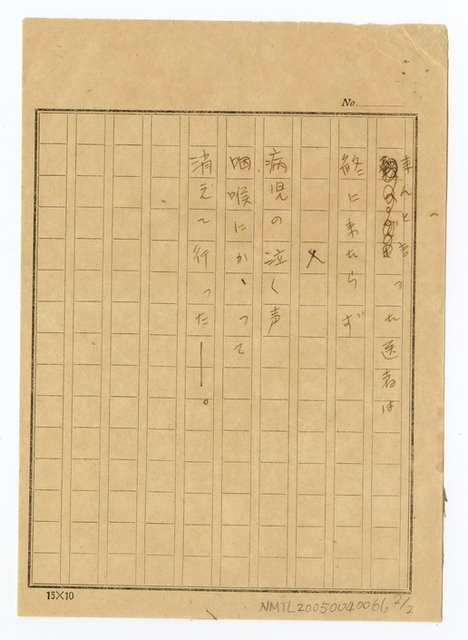 No.
来んと言った医者は
終に来たらず
×
病児の泣く声
咽喉にかゝって
消えて行った――。
15×10
NMTL20050040066 2/2